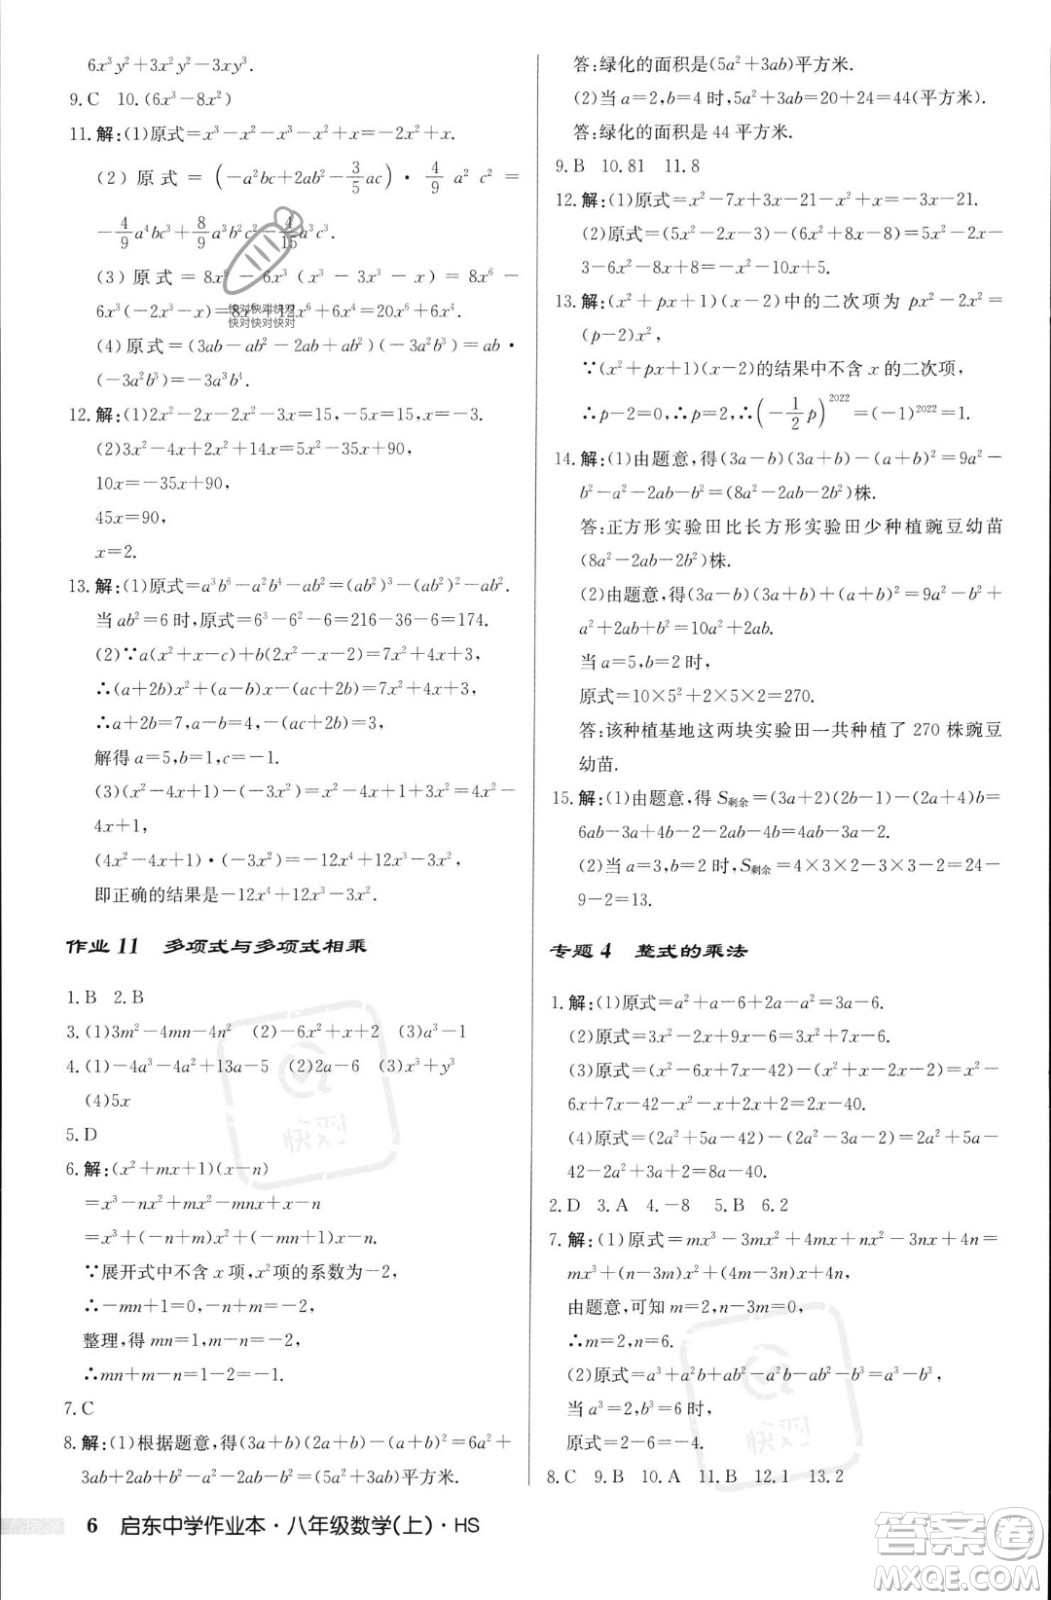 6x³y²+3x²y²-3xy³.
9.C 10.(6x³-8x²)
11.解:(1)原式=x³-x²-x³-x²=-2x².
(2)原式=(-a²bc+2ab²-3/5ac)·4/9a²c²=
-4/9a⁴bc³+8/9a³b²c²-4/15a³c³.
(3)原式=8x⁶-6x³(x³-2x³-x)=8x⁶-
6x³(-2x³-x)=8x⁶+12x⁶+6x⁴=20x⁶+6x⁴.
快对快对快对
快对快对快对
(4)原式=(3ab-ab²-2ab²-3ab)=ab·
(-3a²b³)=-3a³b⁴.
12.解:(1)2x²-2x-2x²-3x=15,-5x=15,x=-3.
(2)3x²-4x+2x²+14x=5x²-35x+90,
10x=-35x+90,
45x=90,
x=2.
13.解:(1)原式=a³b⁶-a²b⁴-ab²=(ab²)³-(ab²)²-ab².
当ab²=6时,原式=6³-6²-6=216-36-6=174.
(2)∵a(x²+x-c)+b(2x²-x-2)=7x²+4x+3,
∴(a+2b)x²+(a-b)x-(ac+2b)=7x²+4x+3,
∴a+2b=7,a-b=4,-(ac+2b)=3,
解得a=5,b=1,c=-1.
(3)(x²-4x+1)-(-3x²)=x²-4x+1+3x²=4x²-
4x+1,
(4x²-4x+1)·(-3x²)=-12x⁴+12x³-3x²,
即正确的结果是-12x⁴+12x³-3x².
作业 11 多项式与多项式相乘
1.B 2.B
3.(1)3m²-4mn-4n² (2)-6x²+x+2 (3)a³-1
4.(1)-4a³-4a²+13a-5 (2)2a-6 (3)x³+y³
(4)5x
5.D
6.解:(x²+mx+1)(x-n)
=x³-nx²+mx²-mnx+x-n
=x³+(-n+m)x²+(-mn+1)x-n.
∵展开式中不含x项,x²项的系数为-2,
∴-mn+1=0,-n+m=-2,
整理,得mn=1,m-n=-2,
∴mn+m-n=1-2=-1.
7.C
8.解:(1)根据题意,得(3a+b)(2a+b)-(a+b)²=6a²+
3ab+2ab+b²-a²-2ab-b²=(5a²+3ab)平方米.
答:绿化的面积是(5a²+3ab)平方米.
(2)当a=2,b=4时,5a²+3ab=20+24=44(平方米).
答:绿化的面积是44平方米.
9.B 10.81 11.8
12.解:(1)原式=x²-7x+3x-21-x²+x=-3x-21.
(2)原式=(5x²-2x-3)-(6x²+8x-8)=5x²-2x-
3-6x²-8x+8=-x²-10x+5.
13.解:(x²+px+1)(x-2)中的二次项为px²-2x²=
(p-2)x²,
∵(x²+px+1)(x-2)的结果中不含x的二次项,
∴p-2=0,∴p=2,∴(-1/2p)²⁰²²=(-1)²⁰²²=1.
14.解:(1)由题意,得(3a-b)(3a+b)-(a+b)²=9a²-
b²-a²-2ab-b²=(8a²-2ab-2b²)株.
答:正方形实验田比长方形实验田少种植豌豆幼苗
(8a²-2ab-2b²)株.
(2)由题意,得(3a-b)(3a+b)+(a+b)²=9a²-b²+
a²+2ab+b²=10a²+2ab.
当a=5,b=2时,
原式=10×5²+2×5×2=270.
答:该种植基地这两块实验田一共种植了270株豌豆
幼苗.
15.解:(1)由题意,得S剩余=(3a+2)(2b-1)-(2a+4)b=
6ab-3a+4b-2-2ab-4b=4ab-3a-2.
(2)当a=3,b=2时,S剩余=4×3×2-3×3-2=24-
9-2=13.
专题 4 整式的乘法
1.解:(1)原式=a²+a-6+2a-a²=3a-6.
(2)原式=3x²-2x+9x-6=3x²+7x-6.
(3)原式=(x²-6x+7x-42)-(x²-x+2x-2)=x²-
6x+7x-42-x²+x-2x+2=-40.
(4)原式=(2a²+5a-42)-(2a²-5a-42)=2a²+
5a-42-2a²+5a+42=10a.
2.D 3.A 4.-8 5.B 6.2
7.解:(1)原式=mx³-3mx²+4mx+nx²-3nx+4n=
mx³+(n-3m)x²+(4m-3n)x+4n,
由题意,可知m=2,n-3m=0,
∴m=2,n=6.
(2)原式=a³+a²b+ab²-a²b-ab²-b³=a³-b³,
当a³=2,b³=6时,
原式=2-6=-4.
8.C 9.B 10.A 11.B 12.1 13.2
快对
快对
6 启东中学作业本·八年级数学(上)·HS
答案圈
MXQE.COM